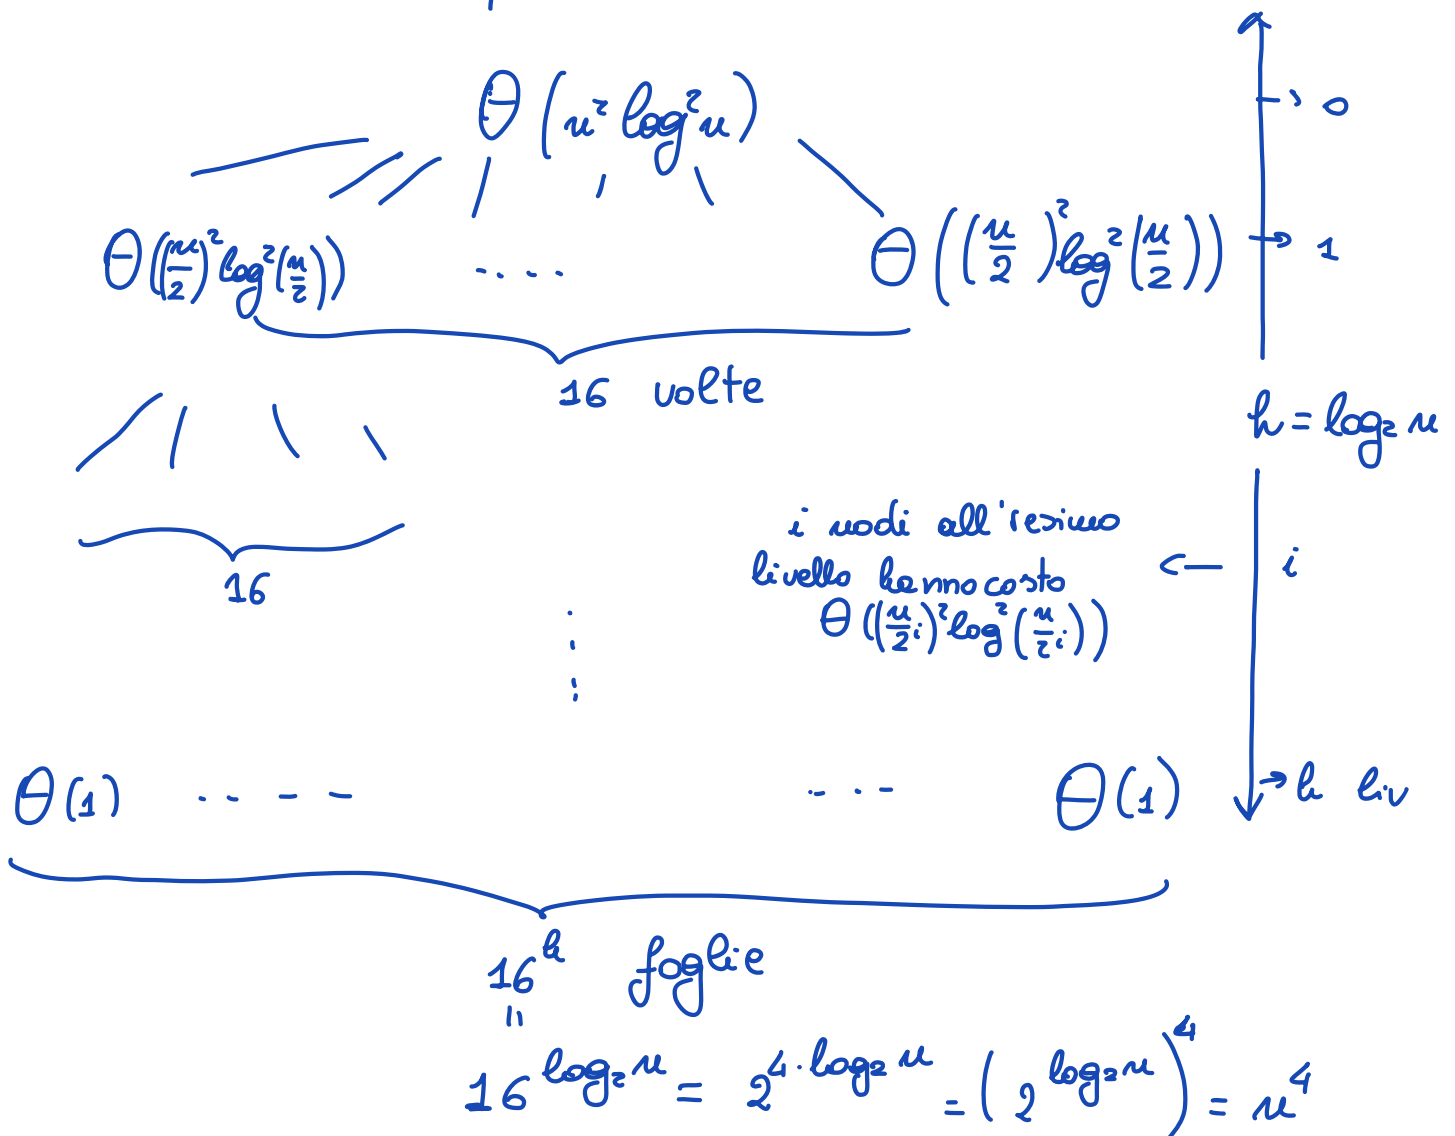 Θ(n² log² n)
→ 0
Θ((n/2)² log²(n/2)) .... Θ((n/2)² log²(n/2))
→ 1
16 volte
h = log₂ n
i nodi all'iesimo
livello hanno costo
Θ((n/2ⁱ)² log²(n/2ⁱ))
← i
16
Θ(1) .... ... Θ(1)
→ h liv
16ʰ foglie
=
16^(log₂ n) = 2^(4·log₂ n) = (2^(log₂ n))⁴ = n⁴